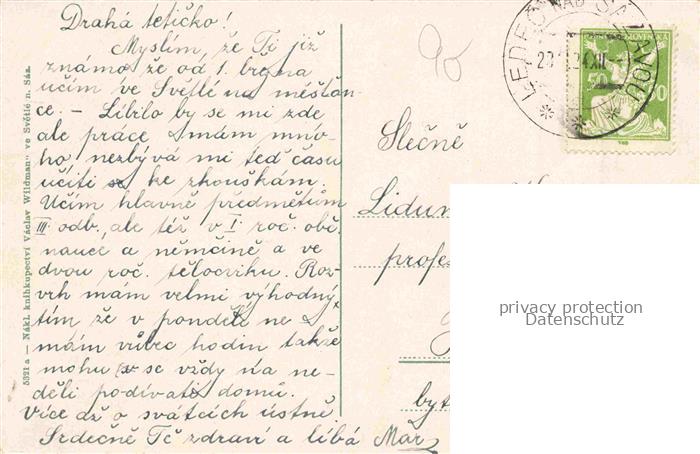 Drahá tetičko!
Myslím, že Ti již
známo že od 1. března
učím ve Světlé na měšťan-
ce. – Líbilo by se mi zde
ale práce mám mno-
ho nezbývá mi teď času
učiti se ke zkouškám.
Učím hlavně předmětům
III. odb., ale též v I. roč. obč.
nauce a němčině a ve
dvou roč. tělocviku. Roz-
vrh mám velmi výhodný
tím že v pondělí ne-
mám vůbec hodin takže
mohu se vždy na ne-
děli podívati domů.
Více až o svátcích ústně.
Srdečně Tě zdraví a líbá Mař
5321 a — Nákl. knihkupectví Václav Wildman ve Světlé n. Sáz.
90
LEDEČ NAD SÁZAVOU
24 XII
50
SLOVENSKÁ
Slečně
Lidun
profes
byt
privacy protection
Datenschutz